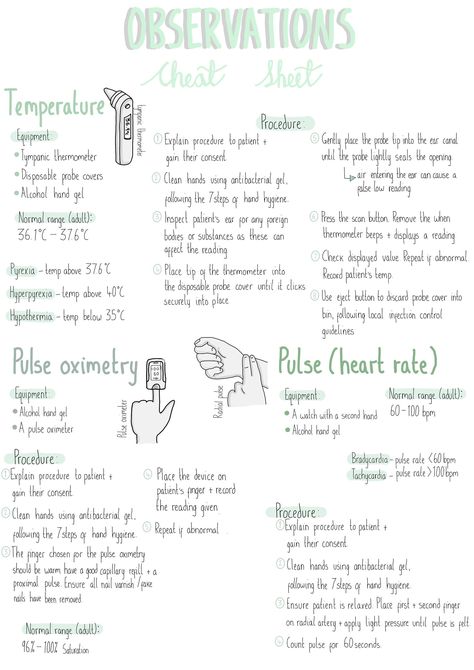 OBSERVATIONS
Cheat Sheet
Temperature
Tympanic thermometer
Equipment
• Tympanic thermometer
• Disposable probe covers
• Alcohol hand gel
Normal range (adult):
36.1°C – 37.6°C
Pyrexia – temp above 37.6°C
Hyperpyrexia – temp above 40°C
Hypothermia – temp below 35°C
Procedure:
① Explain procedure to patient +
gain their consent
② Clean hands using antibacterial gel,
following the 7 steps of hand hygiene.
③ Inspect patient's ear for any foreign
bodies or substances as these can
affect the reading
Place tip of the thermometer into
the disposable probe cover until it clicks
securely into place
Gently place the probe tip into the ear canal
until the probe lightly seals the opening
↳ air entering the ear can cause a
false low reading
⑥ Press the scan button. Remove the when
thermometer beeps + displays a reading
⑦ Check displayed value. Repeat if abnormal.
Record patient's temp.
⑧ Use eject button to discard probe cover into
bin, following local injection control
guidelines
Pulse oximetry
Pulse oximeter
Equipment
• Alcohol hand gel
• A pulse oximeter
Procedure:
① Explain procedure to patient +
gain their consent.
② Clean hands using antibacterial gel,
following the 7 steps of hand hygiene.
③ The finger chosen for the pulse oximetry
should be warm have a good capillary refill + a
proximal pulse. Ensure all nail varnish / fake
nails have been removed.
④ Place the device on
patient's finger + record
the reading given
⑤ Repeat if abnormal
Normal range (adult):
96% – 100% Saturation
Radial pulse
Pulse (heart rate)
Equipment
• A watch with a second hand
• Alcohol hand gel
Normal range (adult):
60 – 100 bpm
Bradycardia – pulse rate < 60 bpm
Tachycardia – pulse rate > 100 bpm
Procedure:
① Explain procedure to patient +
gain their consent.
② Clean hands using antibacterial gel,
following the 7 steps of hand hygiene.
③ Ensure patient is relaxed. Place first + second finger
on radial artery + apply light pressure until pulse is felt
④ Count pulse for 60 seconds.